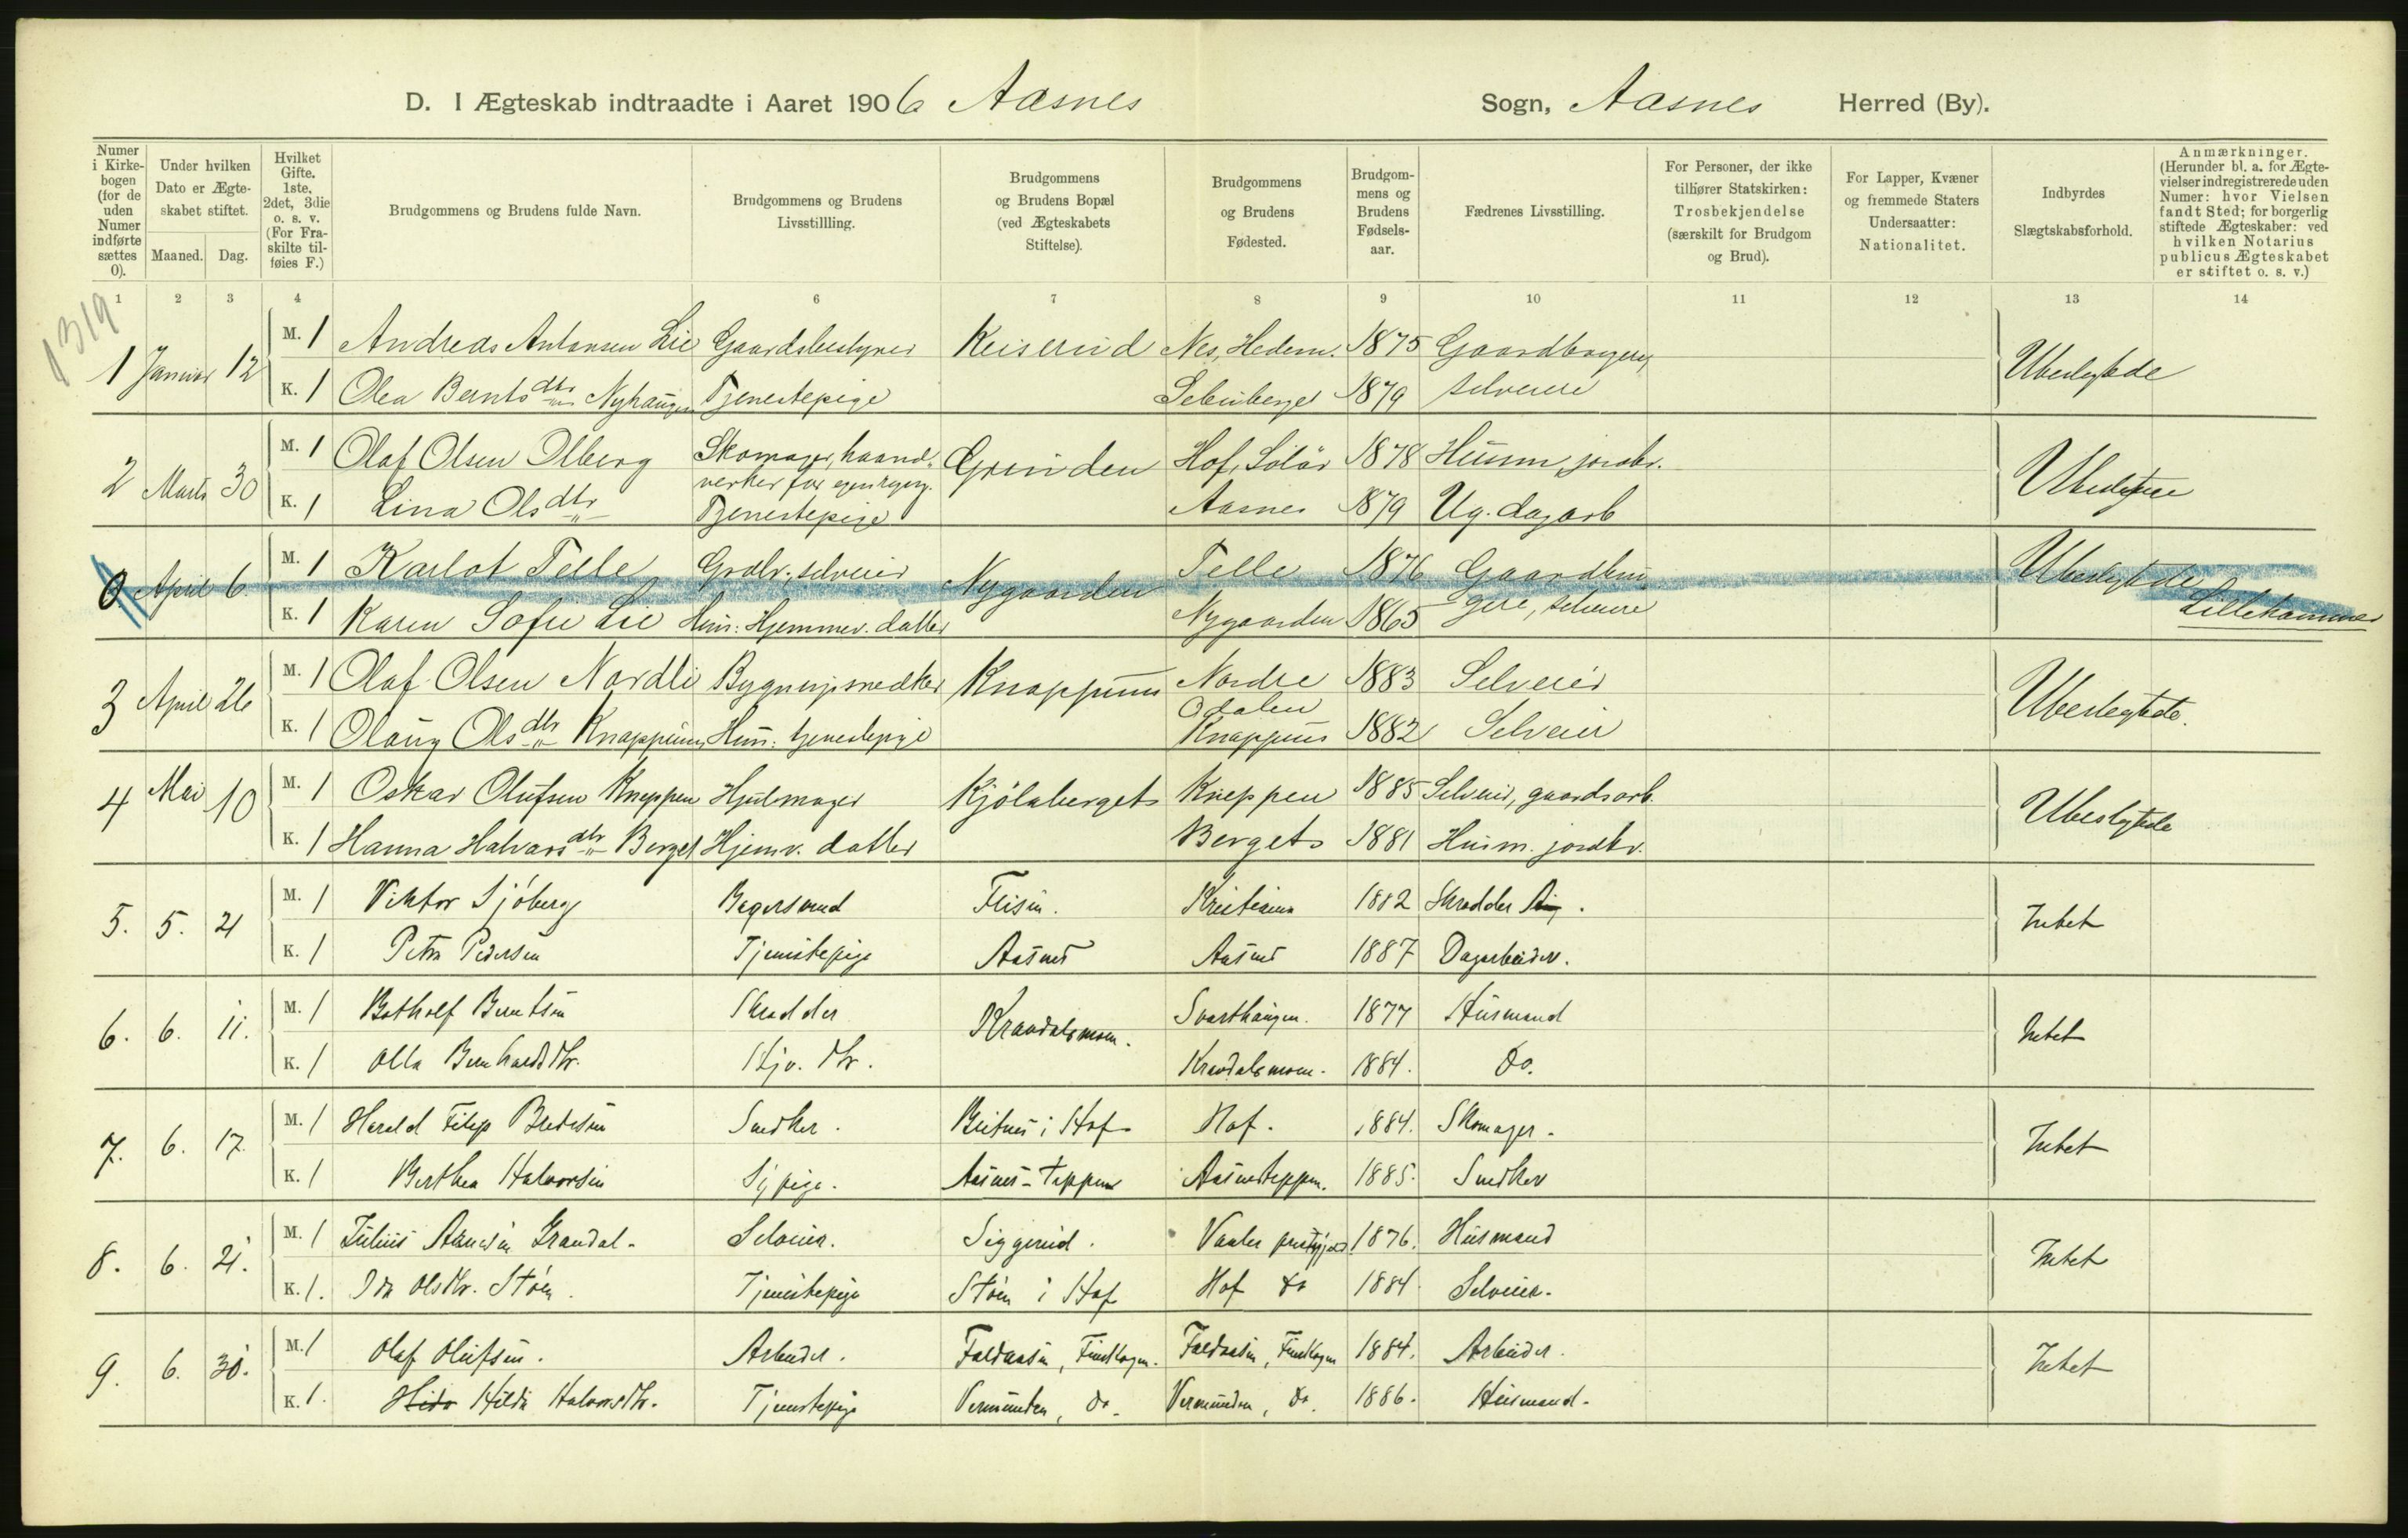 D. I Ægteskab indtraadte i Aaret 1906 Aasnes Sogn, Aasnes Herred (By).
Numer i Kirkebogen (for de uden Numer indførte sættes 0).
Under hvilken Dato er Ægteskabet stiftet.
Maaned. Dag.
Hvilket Gifte. 1ste, 2det, 3die o. s. v. (For Fraskilte tilføies F.)
Brudgommens og Brudens fulde Navn.
Brudgommens og Brudens Livsstillling.
Brudgommens og Brudens Bopæl (ved Ægteskabets Stiftelse).
Brudgommens og Brudens Fødested.
Brudgommens og Brudens Fødselsaar.
Fædrenes Livsstilling.
For Personer, der ikke tilhører Statskirken: Trosbekjendelse (særskilt for Brudgom og Brud).
For Lapper, Kvæner og fremmede Staters Undersaatter: Nationalitet.
Indbyrdes Slægtskabsforhold.
Anmærkninger. (Herunder bl. a. for Ægtevielser indregistrerede uden Numer: hvor Vielsen fandt Sted; for borgerlig stiftede Ægteskaber: ved hvilken Notarius publicus Ægteskabet er stiftet o. s. v.)
1 2 3 4 6 7 8 9 10 11 12 13 14
1319
1 Januar 12 M. 1 Andreas Antonsen Lie Gaardsbestyrer Keiserud Nes, Hedem. 1875 Gaardbrugere, Ubeslegtede
K. 1 Olea Berntsdtr Nyhaugen Tjenestepige 1879 selveiere
2 Marts 30 M. 1 Olaf Olsen Olberg Skomager, haandverker for egen regng. Grinden Hof, Solør 1878 Husm, jordbr. Ubeslegtede
K. 1 Lina Olsdtr Tjenestepige Aasnes 1879 Ug. dagarb
0 April 6. M. 1 Karlot Telle Grdbr., selveier Nygaarden Telle 1876 Gaardbru Ubeslegtede Lillehammer
K. 1 Karen Sofie Lie Hus: Hjemmev. datter Nygaarden 1865 gere, selveiere
3 April 26 M. 1 Olaf Olsen Nordli Bygningssnedker Knappum Nordre Odalen 1883 Selveier Ubeslegtede.
K. 1 Olaug Olsdtr Knappum Hus: tjenestepige Knappum 1882 Selveier
4 Mai 10 M. 1 Oskar Olufsen Kneppen Hjulmager Kjølaberget Kneppen 1885 Selveier, gaardsarb. Ubeslegtede
K. 1 Hanna Halvorsdtr Berget Hjemv. datter Berget 1881 Husm. jordbr.
5. 5. 21 M. 1 Viktor Sjöberg Bagersvend Flisen. Kristiania 1882 Skrædder Intet
K. 1 Petra Pedersen Tjenestepige Aasnes Aasnes 1887 Dagarbeider.
6. 6. 11. M. 1 Botholf Berntsen Skrædder Svarthaugen. 1877 Husmand Intet
K. 1 Olla Bernhardsdtr. Hjv. Dtr. 1884. do.
7. 6. 17. M. 1 Harald Filip Bredesen Snedker. i Hof Hof. 1884. Skomager. Intet
K. 1 Berthea Halvorsen Sypige. Aasnes-teppen Aasnesteppen. 1885. Snedker
8. 6. 21. M. 1 Julius Grandal. Selveier. Siggerud. Vaaler 1876. Husmand Intet
K. 1. Ida Olsdtr. Støen. Tjenestepige Støen i Hof Hof do 1884. Selveier.
9. 6. 30. M. 1 Olaf Olufsen. Arbeider. Faldaasen, Finskogen. Faldaasen, Finskogen 1884. Arbeider. Intet
K. 1. Hilda Halvorsdtr. Tjenestepige Vermunden, do. Vermunden, do. 1886. Husmand.